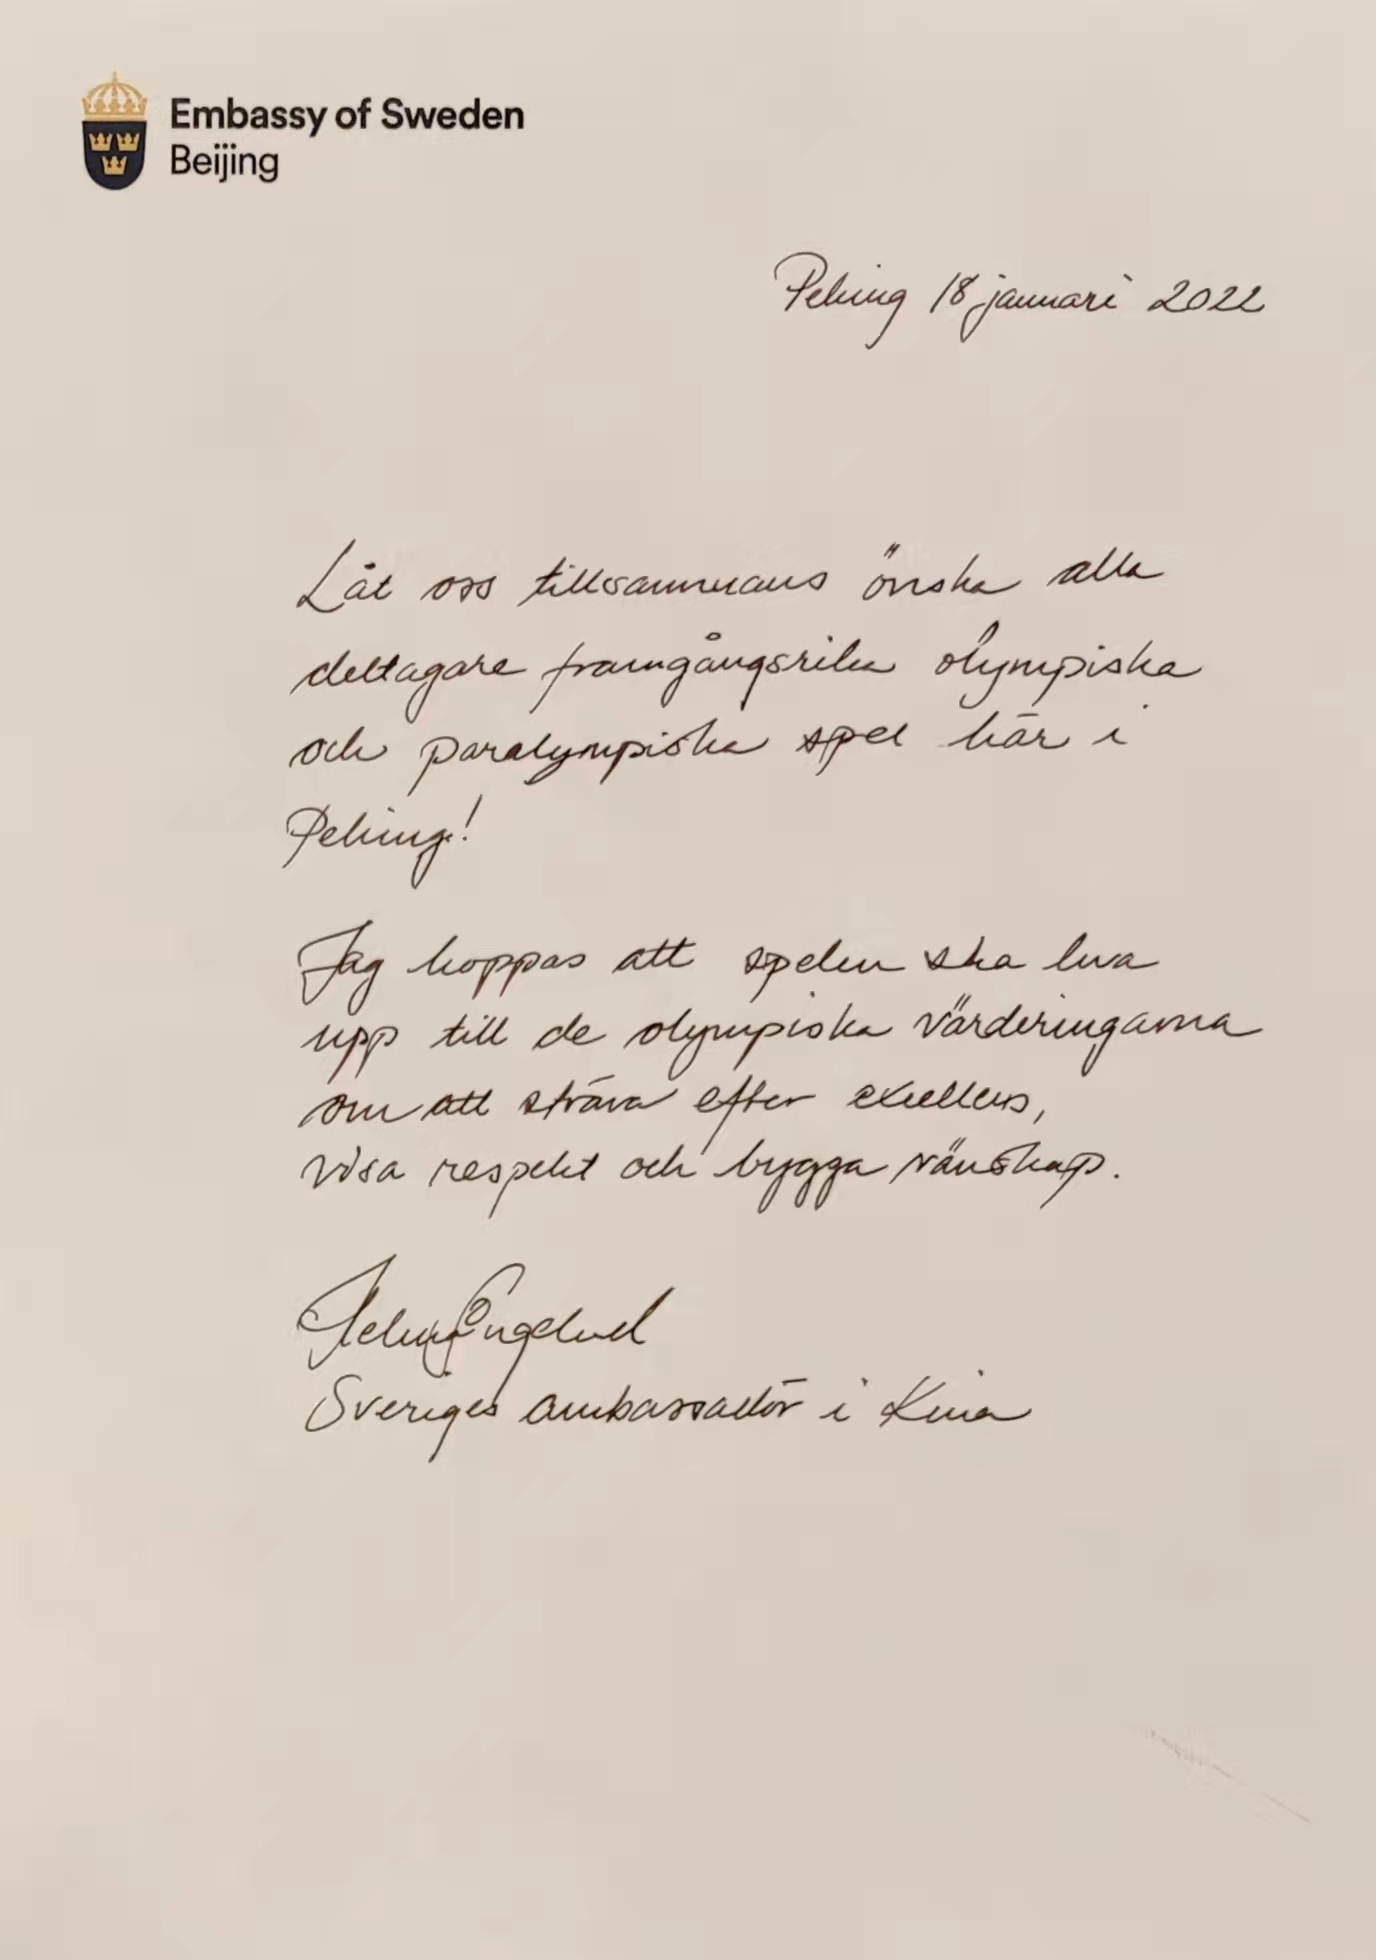 Embassy of Sweden
Beijing
Peking 18 januari 2022
Låt oss tillsammans önska alla
deltagare framgångsrika olympiska
och paralympiska spel här i
Peking!
Jag hoppas att spelen ska leva
upp till de olympiska värderingarna
om att sträva efter excellens,
visa respekt och bygga vänskap.
Helena Sångeland
Sveriges ambassadör i Kina